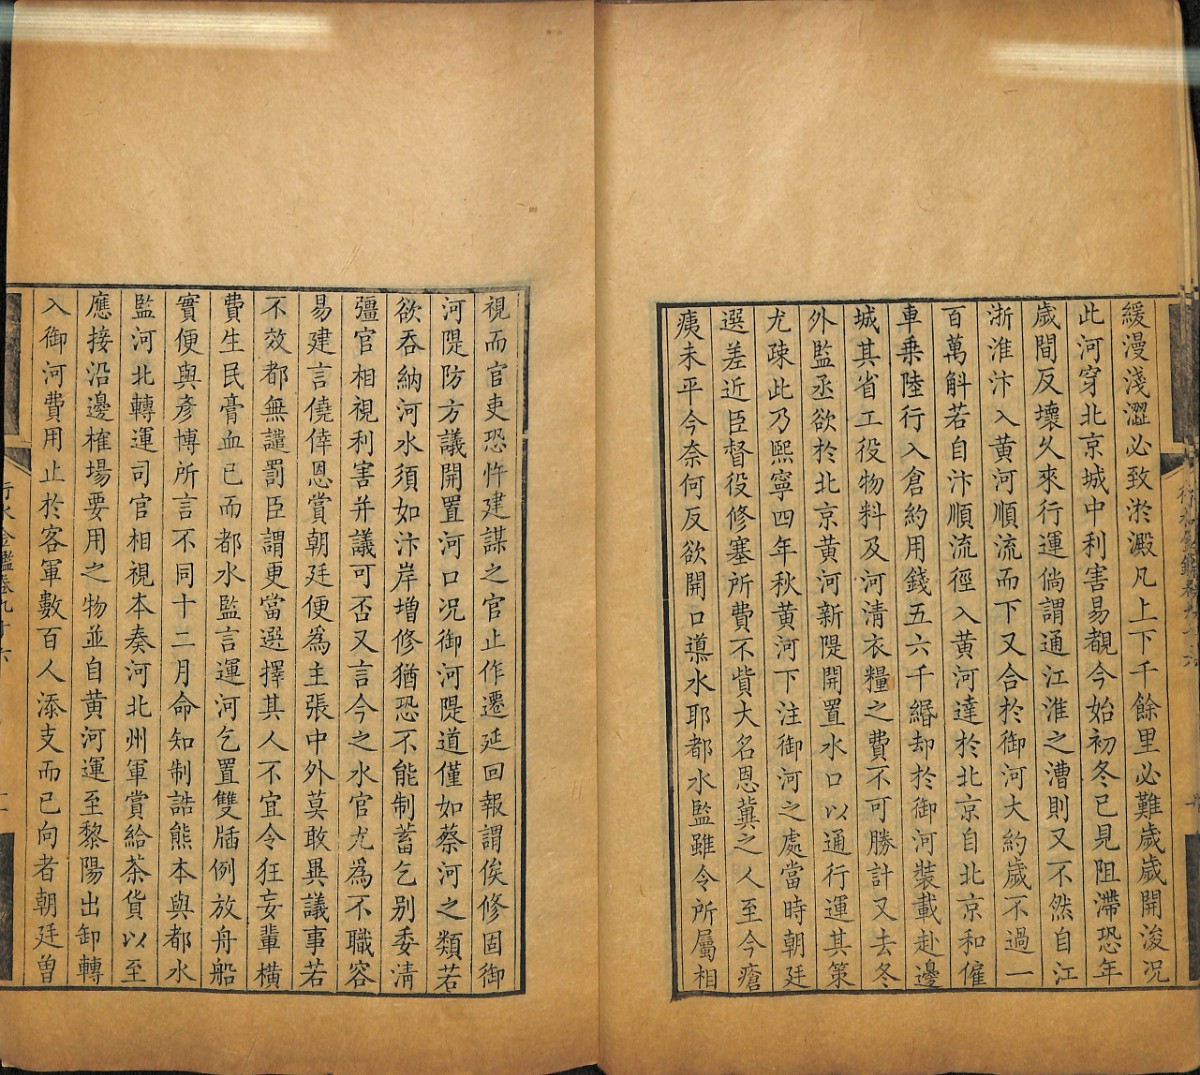 緩漫淺澀必致淤澱凡上下千餘里必難歲歲開浚况
此河穿北京城中利害易覩今始初冬已見阻滯恐年
歲間反壞久來行運倘謂通江淮之漕則又不然自江
浙淮汴入黄河順流而下又合於御河大約歲不過一
百萬斛若自汴順流徑入黄河達於北京自北京和僱
車乗陸行入倉約用錢五六千緡却於御河裝載赴邊
城其省工役物料及河清衣糧之費不可勝計又去冬
外監丞欲於北京黄河新隄開置水口以通行運其策
尤疎此乃熙寧四年秋黄河下注御河之處當時朝廷
選差近臣督役修塞所費不貲大名恩冀之人至今瘡
痍未平今奈何反欲開口導水耶都水監雖令所屬相
視而官吏恐忤建謀之官止作遷延回報謂俟修固御
河隄防方議開置河口况御河隄道僅如蔡河之類若
欲吞納河水須如汴岸增修猶恐不能制蓄乞别委清
彊官相視利害并議可否又言今之水官尤為不職容
易建言僥倖恩賞朝廷便為主張中外莫敢異議事若
不效都無譴罰臣謂更當選擇其人不宜令狂妄輩橫
費生民膏血已而都水監言運河乞置雙牐例放舟船
實便與彥博所言不同十二月命知制誥熊本與都水
監河北轉運司官相視本奏河北州軍賞給茶貨以至
應接沿邊榷場要用之物並自黄河運至黎陽出卸轉
入御河費用止於客軍數百人添支而已向者朝廷曽
行水金鑑卷九十六